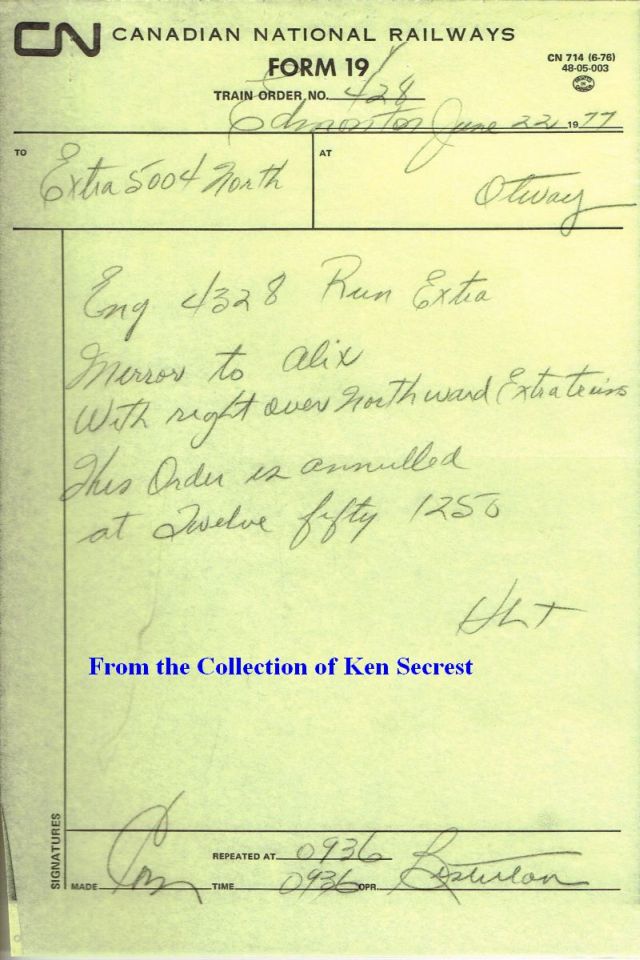 CN CANADIAN NATIONAL RAILWAYS
FORM 19
CN 714 (6-76)
48-05-003
TRAIN ORDER, NO. 428
Edmonton June 22 1977
TO Extra 5004 North
AT Otway
Eng 4328 Run Extra
Mirror to Alix
With right over Northward Extra trains
This Order is annulled
at Twelve fifty 1250
From the Collection of Ken Secrest
SIGNATURES
REPEATED AT 0936
MADE Com TIME 0936 OPR.